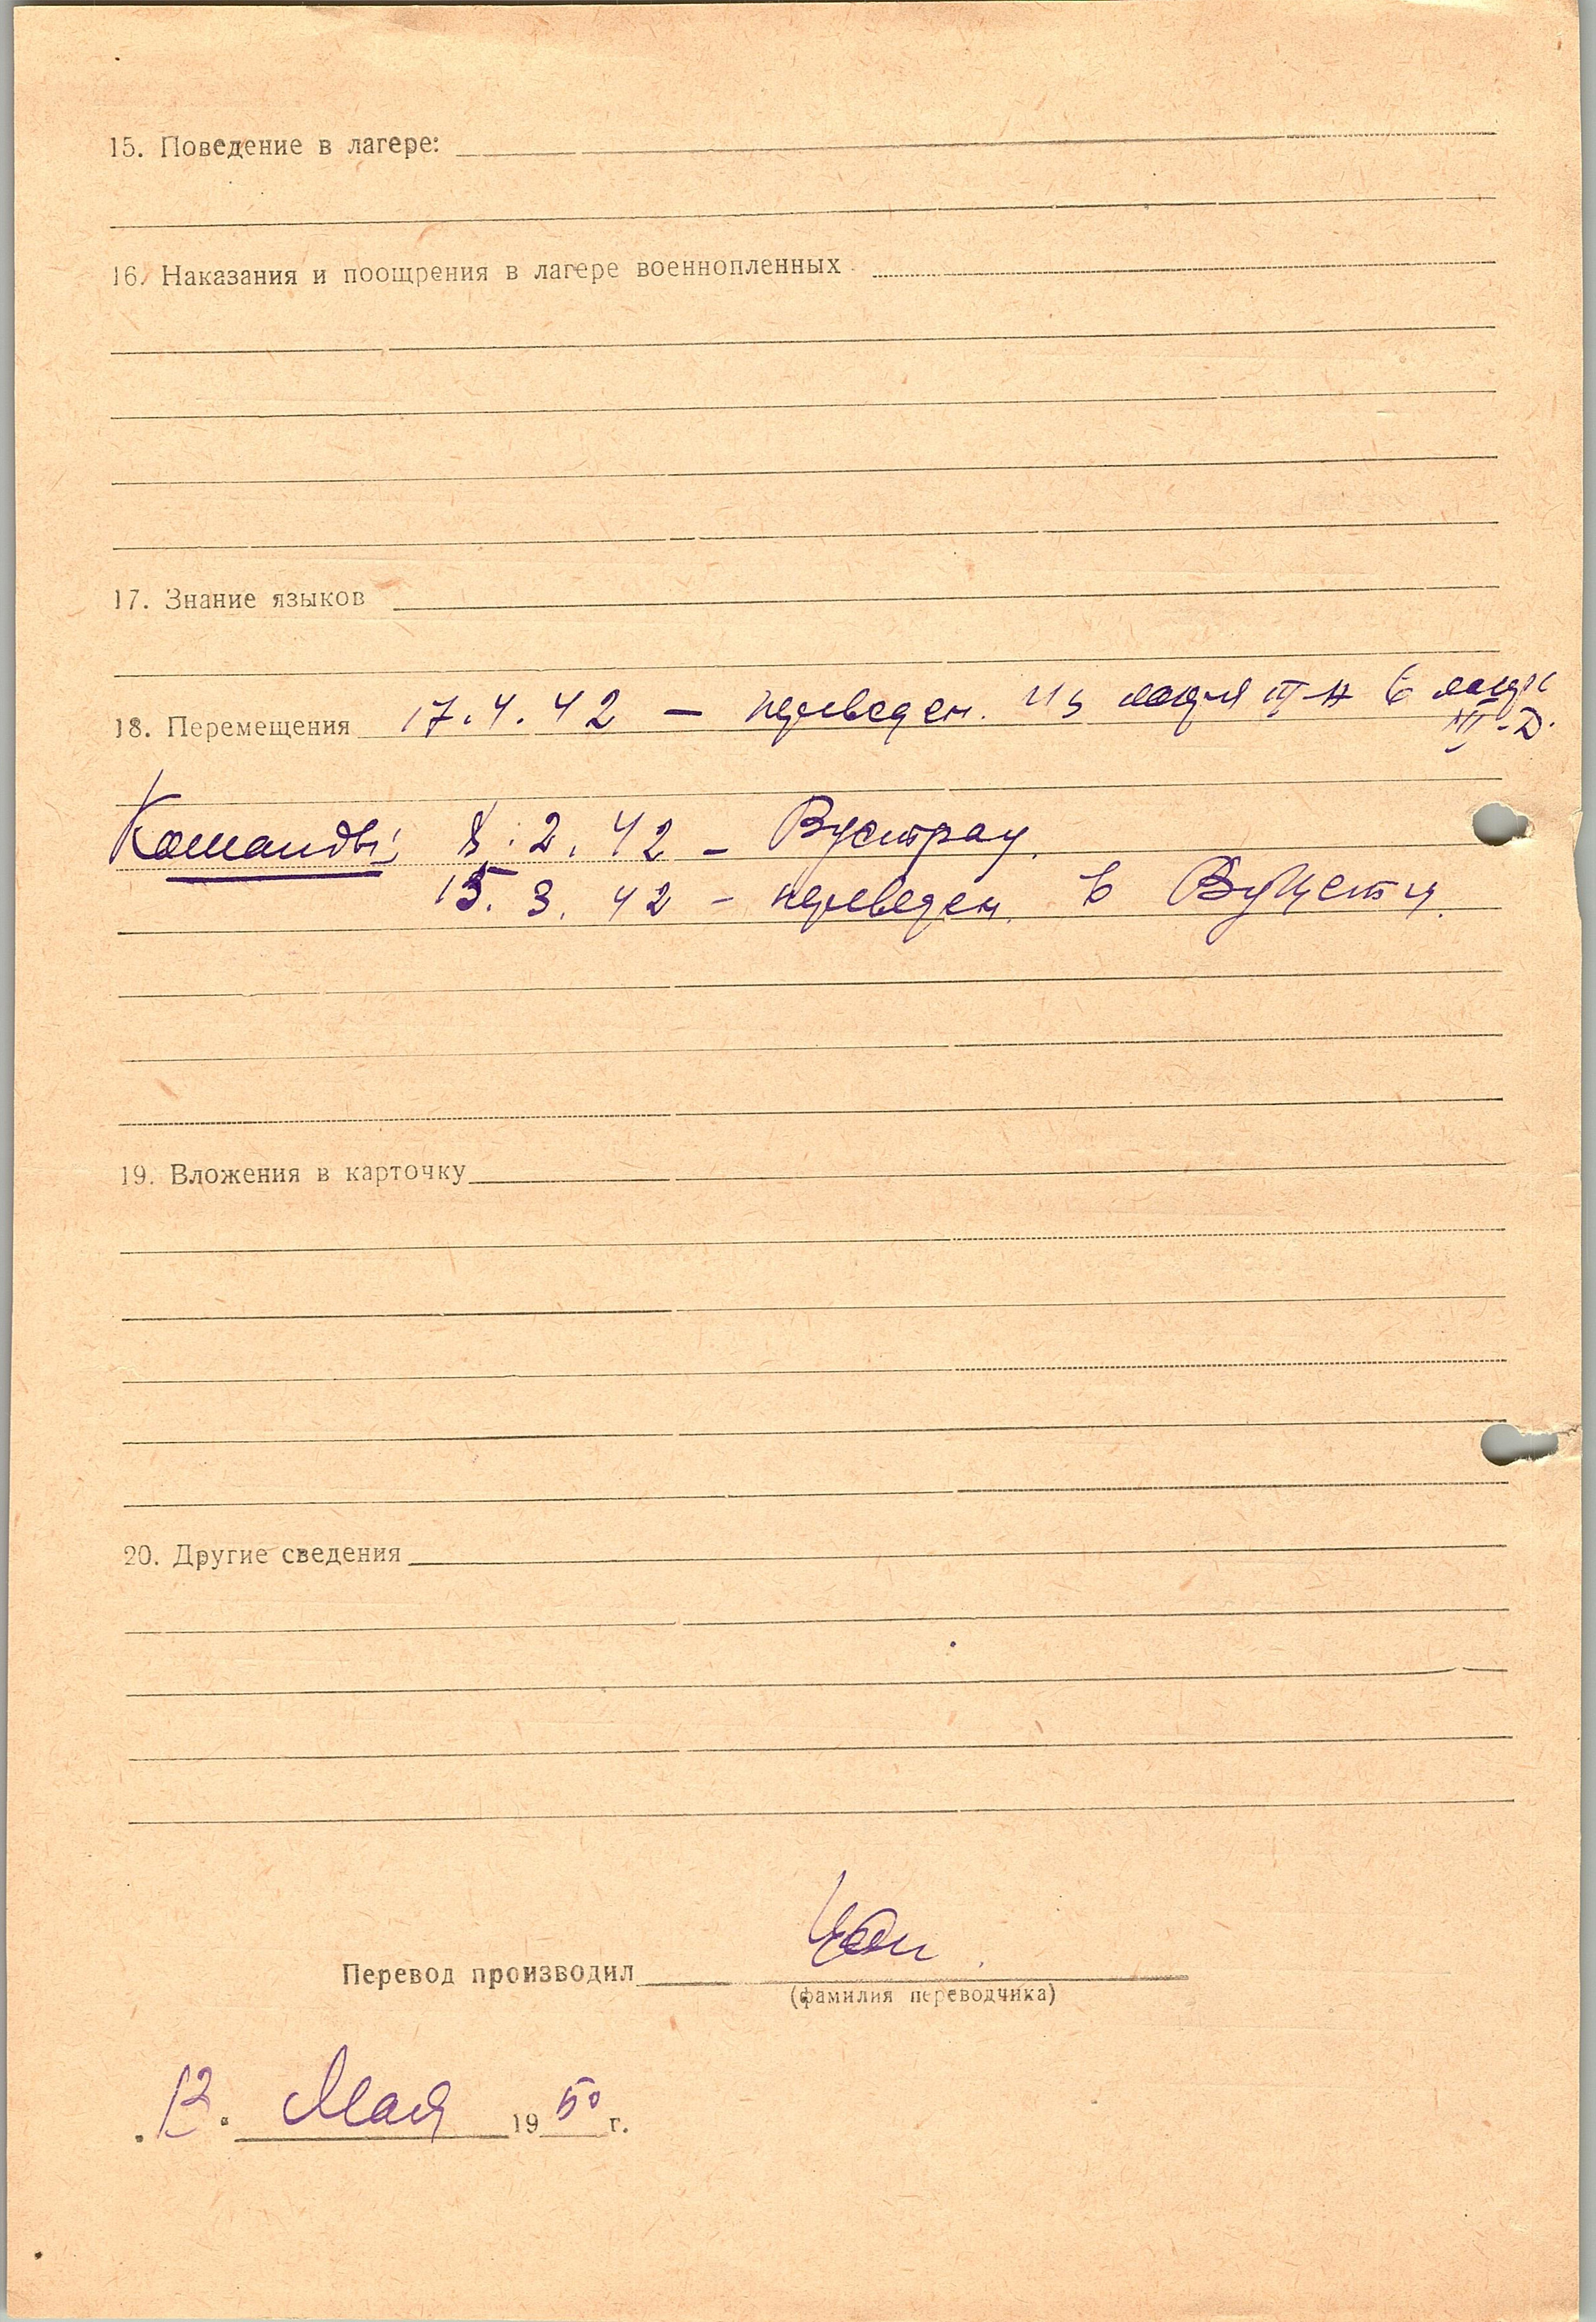 15. Поведение в лагере:
16. Наказания и поощрения в лагере военнопленных
17. Знание языков
18. Перемещения 17.4.42 — переведен. из лагеря III-A в лагерь
III-D.
Команды: 8.2.42 - Вустрау.
15.3.42 - переведен. в
19. Вложения в карточку
20. Другие сведения
Перевод производил
(фамилия переводчика)
"12" Мая 1950 г.